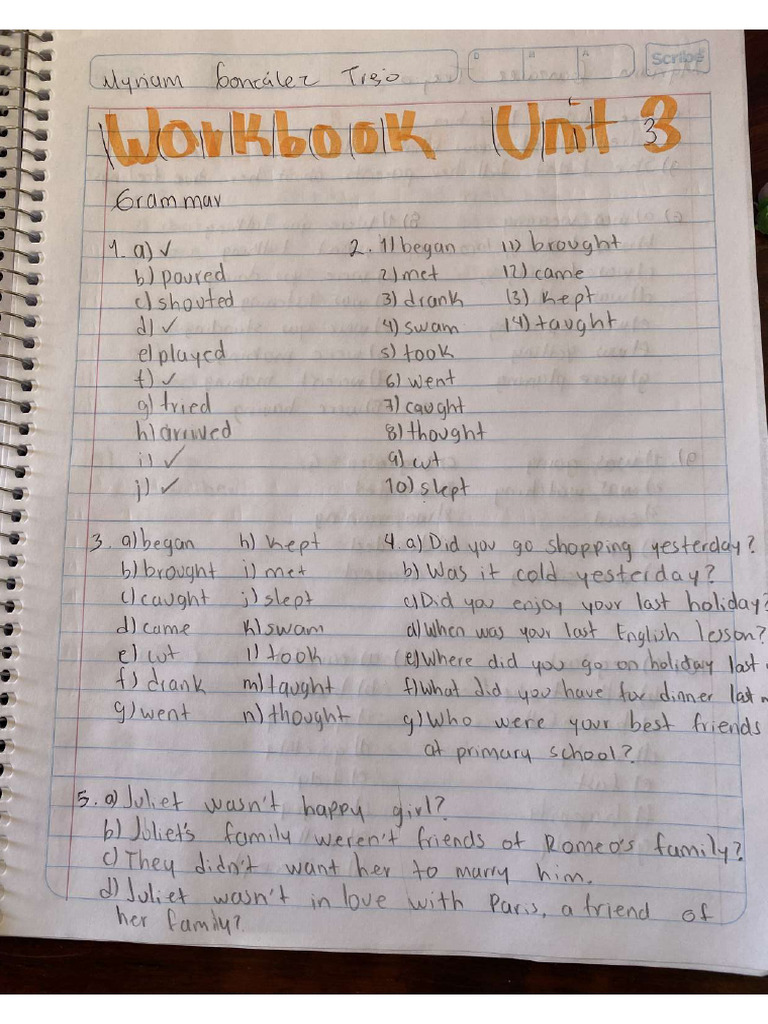 Myriam González Trejo
D B A
Scribe
Workbook Unit 3
Grammar
1. a) ✓
b) poured
c) shouted
d) ✓
e) played
f) ✓
g) tried
h) arrived
i) ✓
j) ✓
2. 1) began
2) met
3) drank
4) swam
5) took
6) went
7) caught
8) thought
9) cut
10) slept
11) brought
12) came
13) kept
14) taught
3. a) began
b) brought
c) caught
d) came
e) cut
f) drank
g) went
h) kept
i) met
j) slept
k) swam
l) took
m) taught
n) thought
4. a) Did you go shopping yesterday?
b) Was it cold yesterday?
c) Did you enjoy your last holiday?
d) When was your last English lesson?
e) Where did you go on holiday last
f) What did you have for dinner last
g) Who were your best friends
at primary school?
5. a) Juliet wasn't happy girl?
b) Juliet's family weren't friends of Romeo's family?
c) They didn't want her to marry him.
d) Juliet wasn't in love with Paris, a friend of
her family?